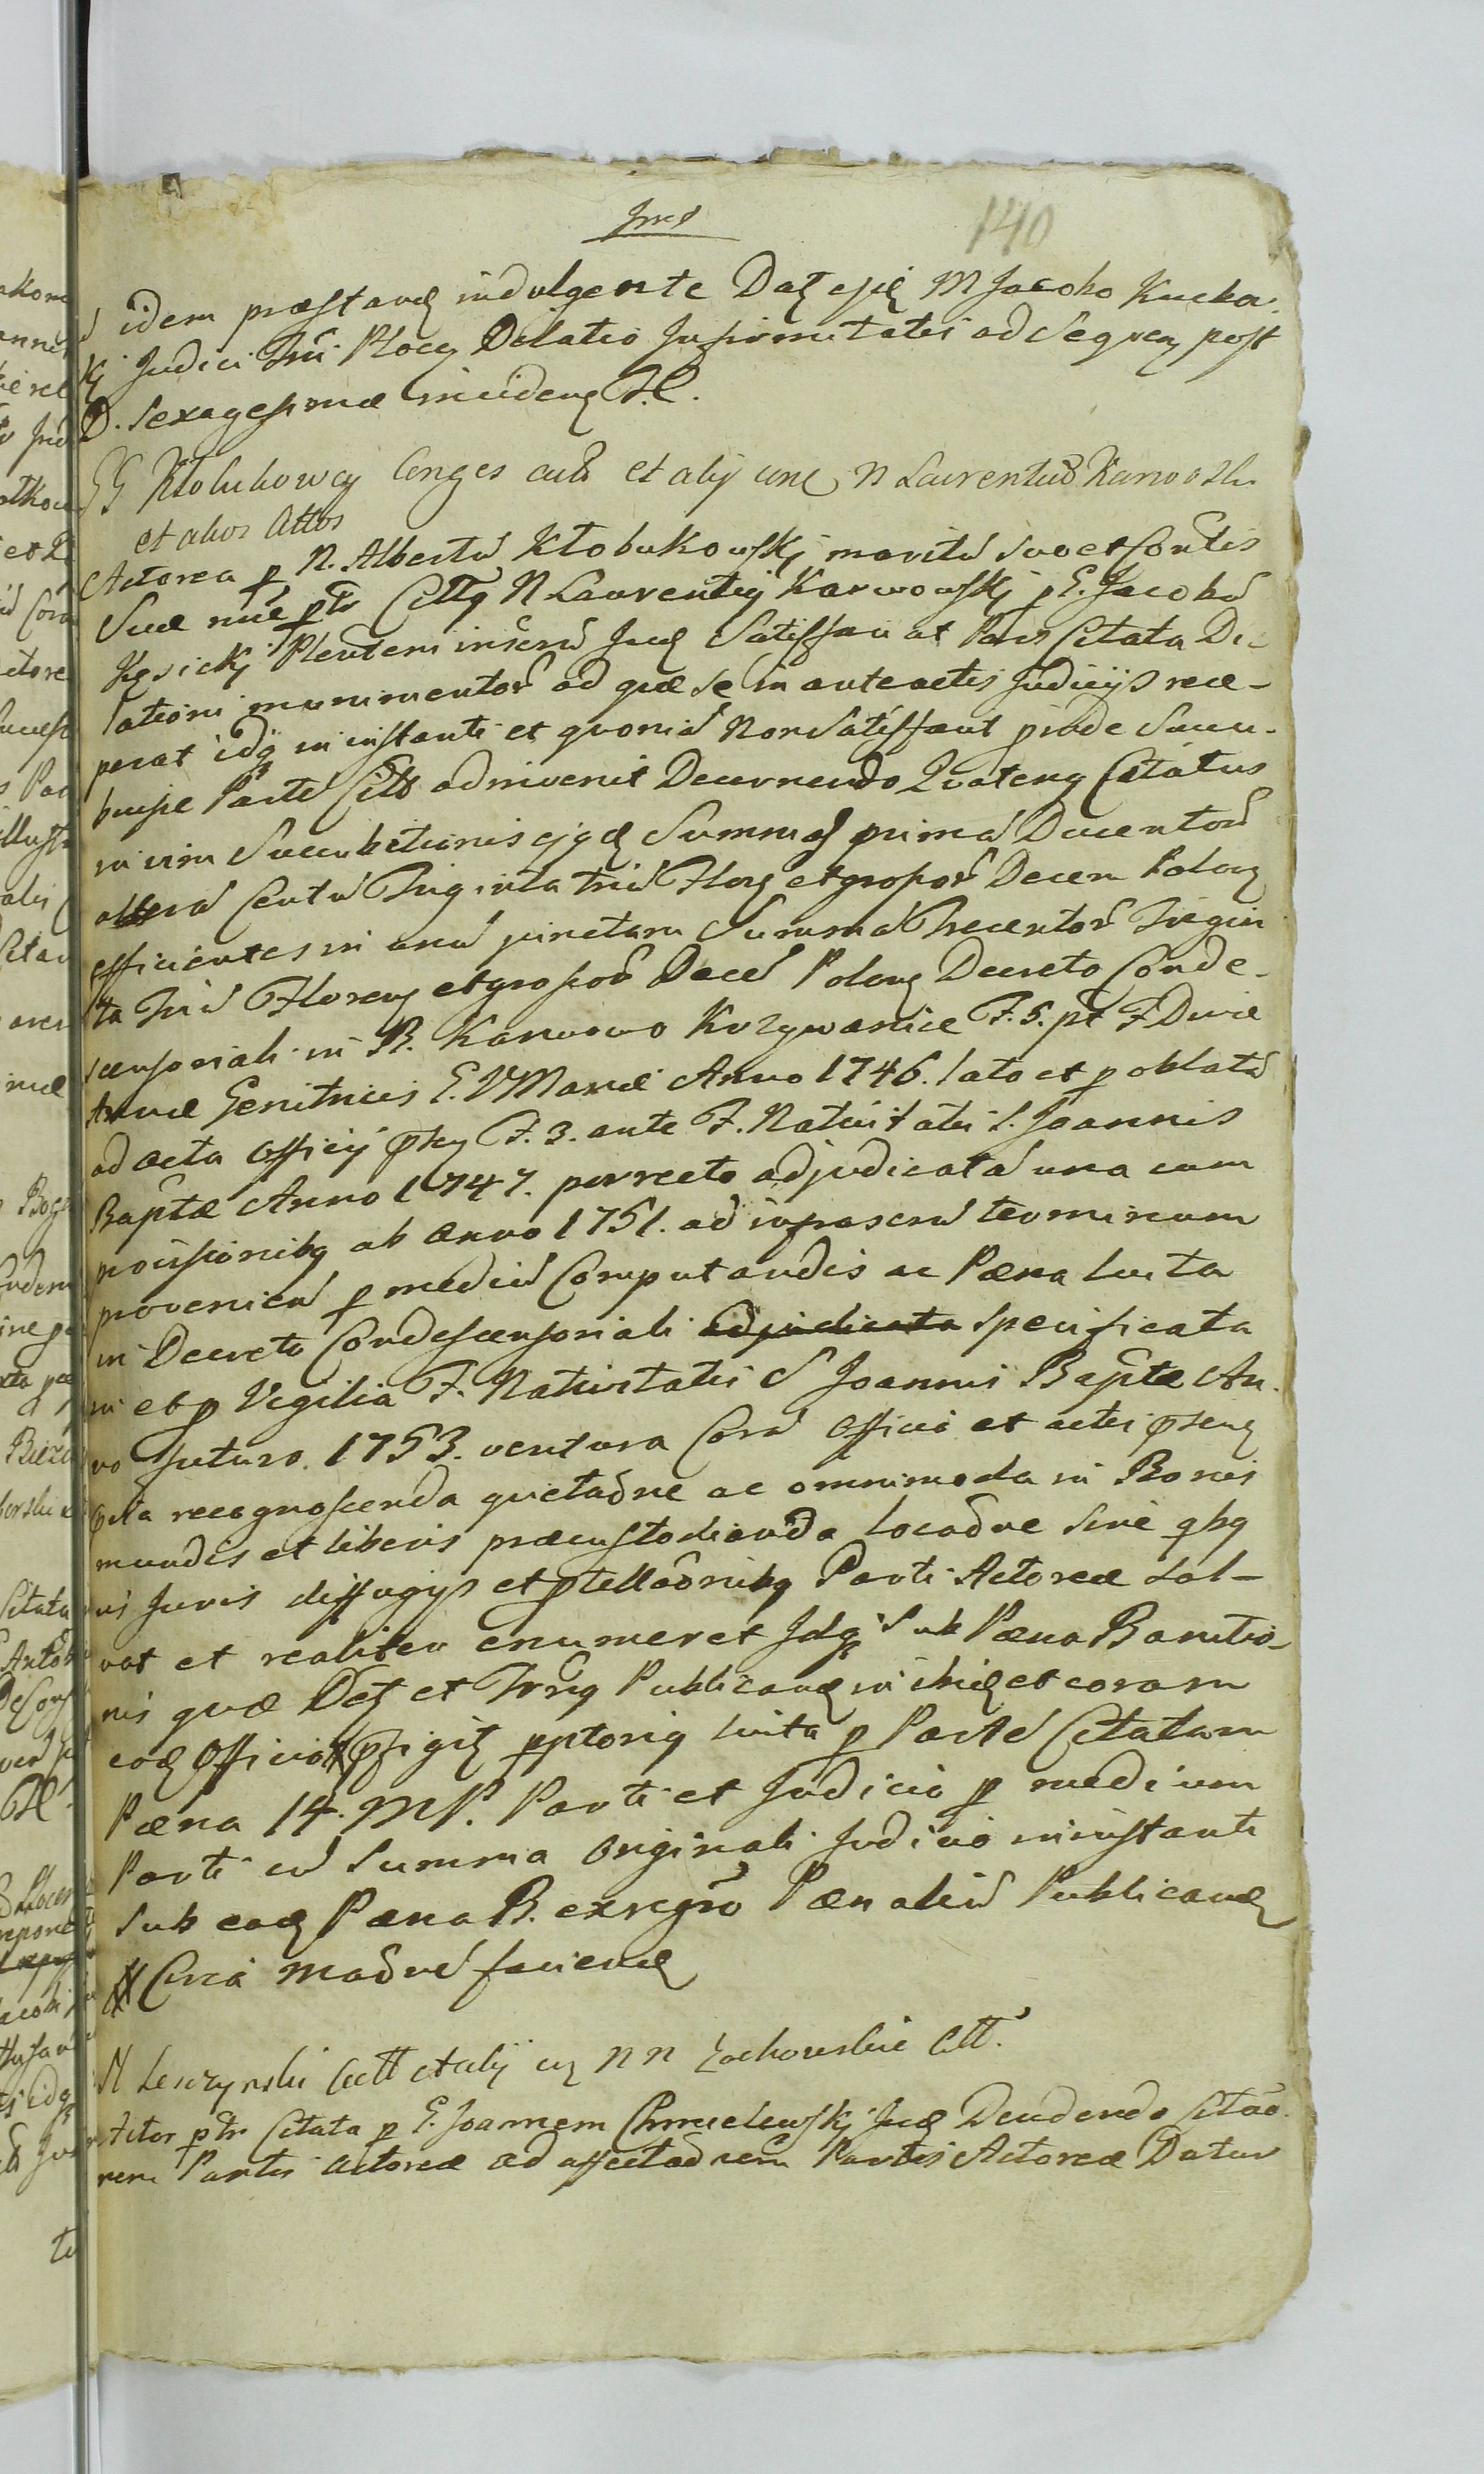 140
idem præstand indulgente Datz ejsd M Jacobo Kucka
kj Judici Trri Plocen Dilatio Infirmitatis ad Sequen post
D. Sexagesimæ inciden H.
GG Kłobukowcy Conges actt et alij cum N Laurentiũ Karwosku
et alios Attos
Actorea p N. Albertũ Kłobukowskj maritũ Suo et Cortis
Suæ nne ptr Cittq N Laurentij Karwowskj p E. Jacobũ
Kęsickj Plentem inscrũ Jud Satisfaciat Pars Citata De-
lationi munimentoř ad quæ se in anteactis Judicijs rece-
perat idq in instanti et quoniã Non Satisfaciant proide Succu-
buisse Partẽ Cittã adinvenit Decernendo Quatenq Citatus
in vim Succubitionis ejsd Summas primã Ducentoř
alterã Centũ Triginta triũ Flor et grossoř Decem Polon
efficientes in unã junctam Summã Trecentoř Trigin
ta Triũ Floren et grossoř Decẽ Polon Decreto Conde-
scensoriali in B. Karwowo Krzywanice F. 5. pt F Divæ
Annæ Genitricis E. V Mariæ Anno 1746. lato et p oblatã
ad acta Officij psny F. 3. ante F. Nativitatis S. Joannis
Baptæ Anno 1747. porrecto adjudicatã una cum
provisionibq ab Anno 1751. ad infrascrũ terminum
provenien p mediũ Computandis ac Pæna luita
in Decreto Condescensoriali adjudicata Specificata
in et p Vigilia F. Nativitatis S Joannis Baptæ An-
no futuro 1753. ventura Corã Officio et actis psen
recognoscenda quietaõne ac omnimoda in Bonis
mundis et liberis præcustodianda locaõne Sine qbq
vis Juris diffugijs et ptellaõnibq Parti Actoreæ Sol-
vat et realiter enumeret Idq Sub Pæna Bannitio-
nis quæ Detz et Trrnq Publicand in ibid et coram
eod Officio # pfigit pptoriq luita p Partẽ Citatam
Pæna 14. MP. Parti et Judicio p medium
Parti cũ Summa Originali Judicio in instanti
Sub ead Pæna B. ex regro Pænaliũ Publicand
# Circa Maõnẽ faciend
N Leszczynski actt et alij cum NN Zochowskie Citt.
Actor ptr Citata p E. Joannem Chmielewskj Jud Dendendo Citaõ
nem Partis Actoreæ ad affectaõnem Partis Actoreæ Datur